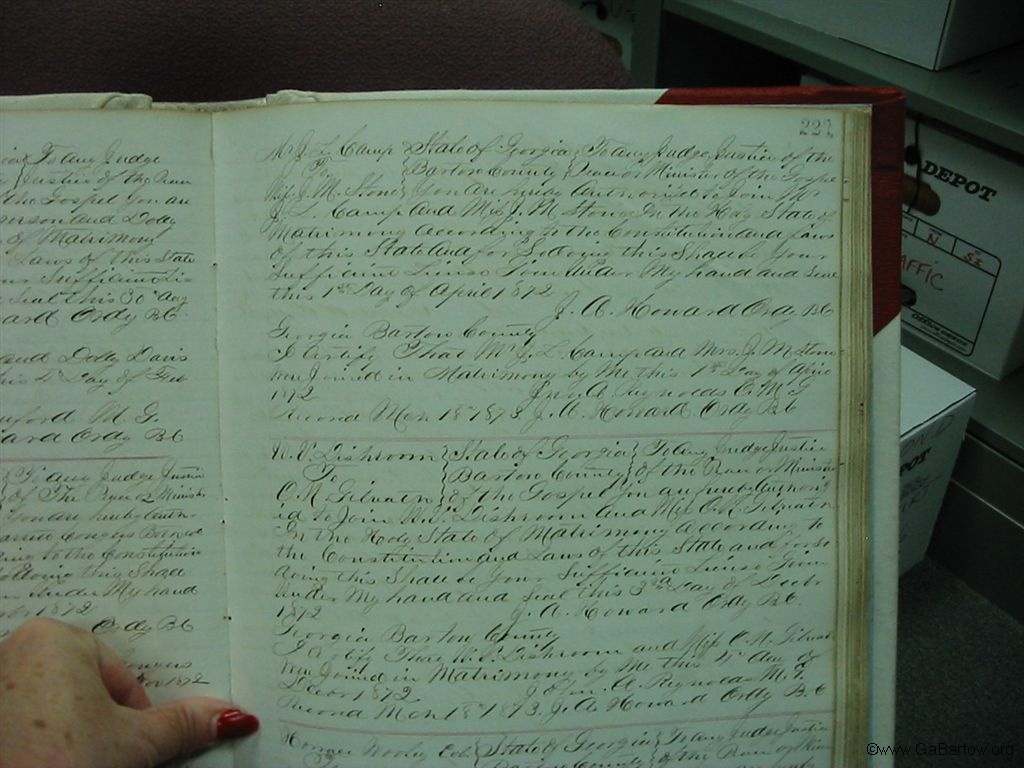 To any Judge
Justice of the Peace
the Gospel you are
person and Dolly
of Matrimony
Laws of this State
Sufficient Li-
Seal this 30th day
ard Ordy B.C.
and Dolly Davis
his 4th Day of Feb
ford M. G.
ard Ordy B.C
To any Judge Justice
of The Peace or Minister
You are hereby auth-
Congers
ing to the Constitution
so doing this Shall
under My hand
1872
Ordy B.C
Congers
Nov 1872
221
Mr J. L. Camp { State of Georgia } To any Judge Justice of the
To { Bartow County } Peace or Minister of the Gospel
Mis J. M. Stone { You are hereby Authorised to Join Mr
J. L. Camp And Mis J. M Stone In the Holy State of
Matrimony According to the Constitution And Laws
of this State And for So doing this Shall be Your
Sufficient License Given under My hand and Seal
this 1st Day of April 1872
J. A. Howard Ordy B.C
Georgia Bartow County
I Certify That Mr J. L. Camp and Mrs. J. M Stone
were Joined in Matrimony by Me this 1st Day of April
1872 Jno A Reynolds M. G
Record Mch 18th 1873 J. A. Howard Ordy B.C
W. S. Dishroom { State of Georgia } To Any Judge Justice
To { Bartow County } of the Peace or Minister
C. A. Gilreath { of the Gospel You are hereby Authoris
ed to Join W. S. Dishroom and Mis C. A. Gilreath
In the Holy State of Matrimony According to
the Constitution and Laws of this State and for so
doing this Shall be Your Sufficient License Given
under My hand and Seal this 3rd Day of Decbr
1872 J. A. Howard Ordy B.C.
Georgia Bartow County
I Certify That W. S. Dishroom and Mis C. A. Gilreath
were Joined in Matrimony by Me this 4th Day of
Decbr 1872 John A. Reynolds M. G.
Record Mch 18th 1873. J. A. Howard Ordy B.C
Homer Wooly Col. { State of Georgia } To Any Judge Justice
Bartow County } of the Peace or Min
DEPOT
N
SI
AFFIC
Office
POT
©www.GaBartow.org